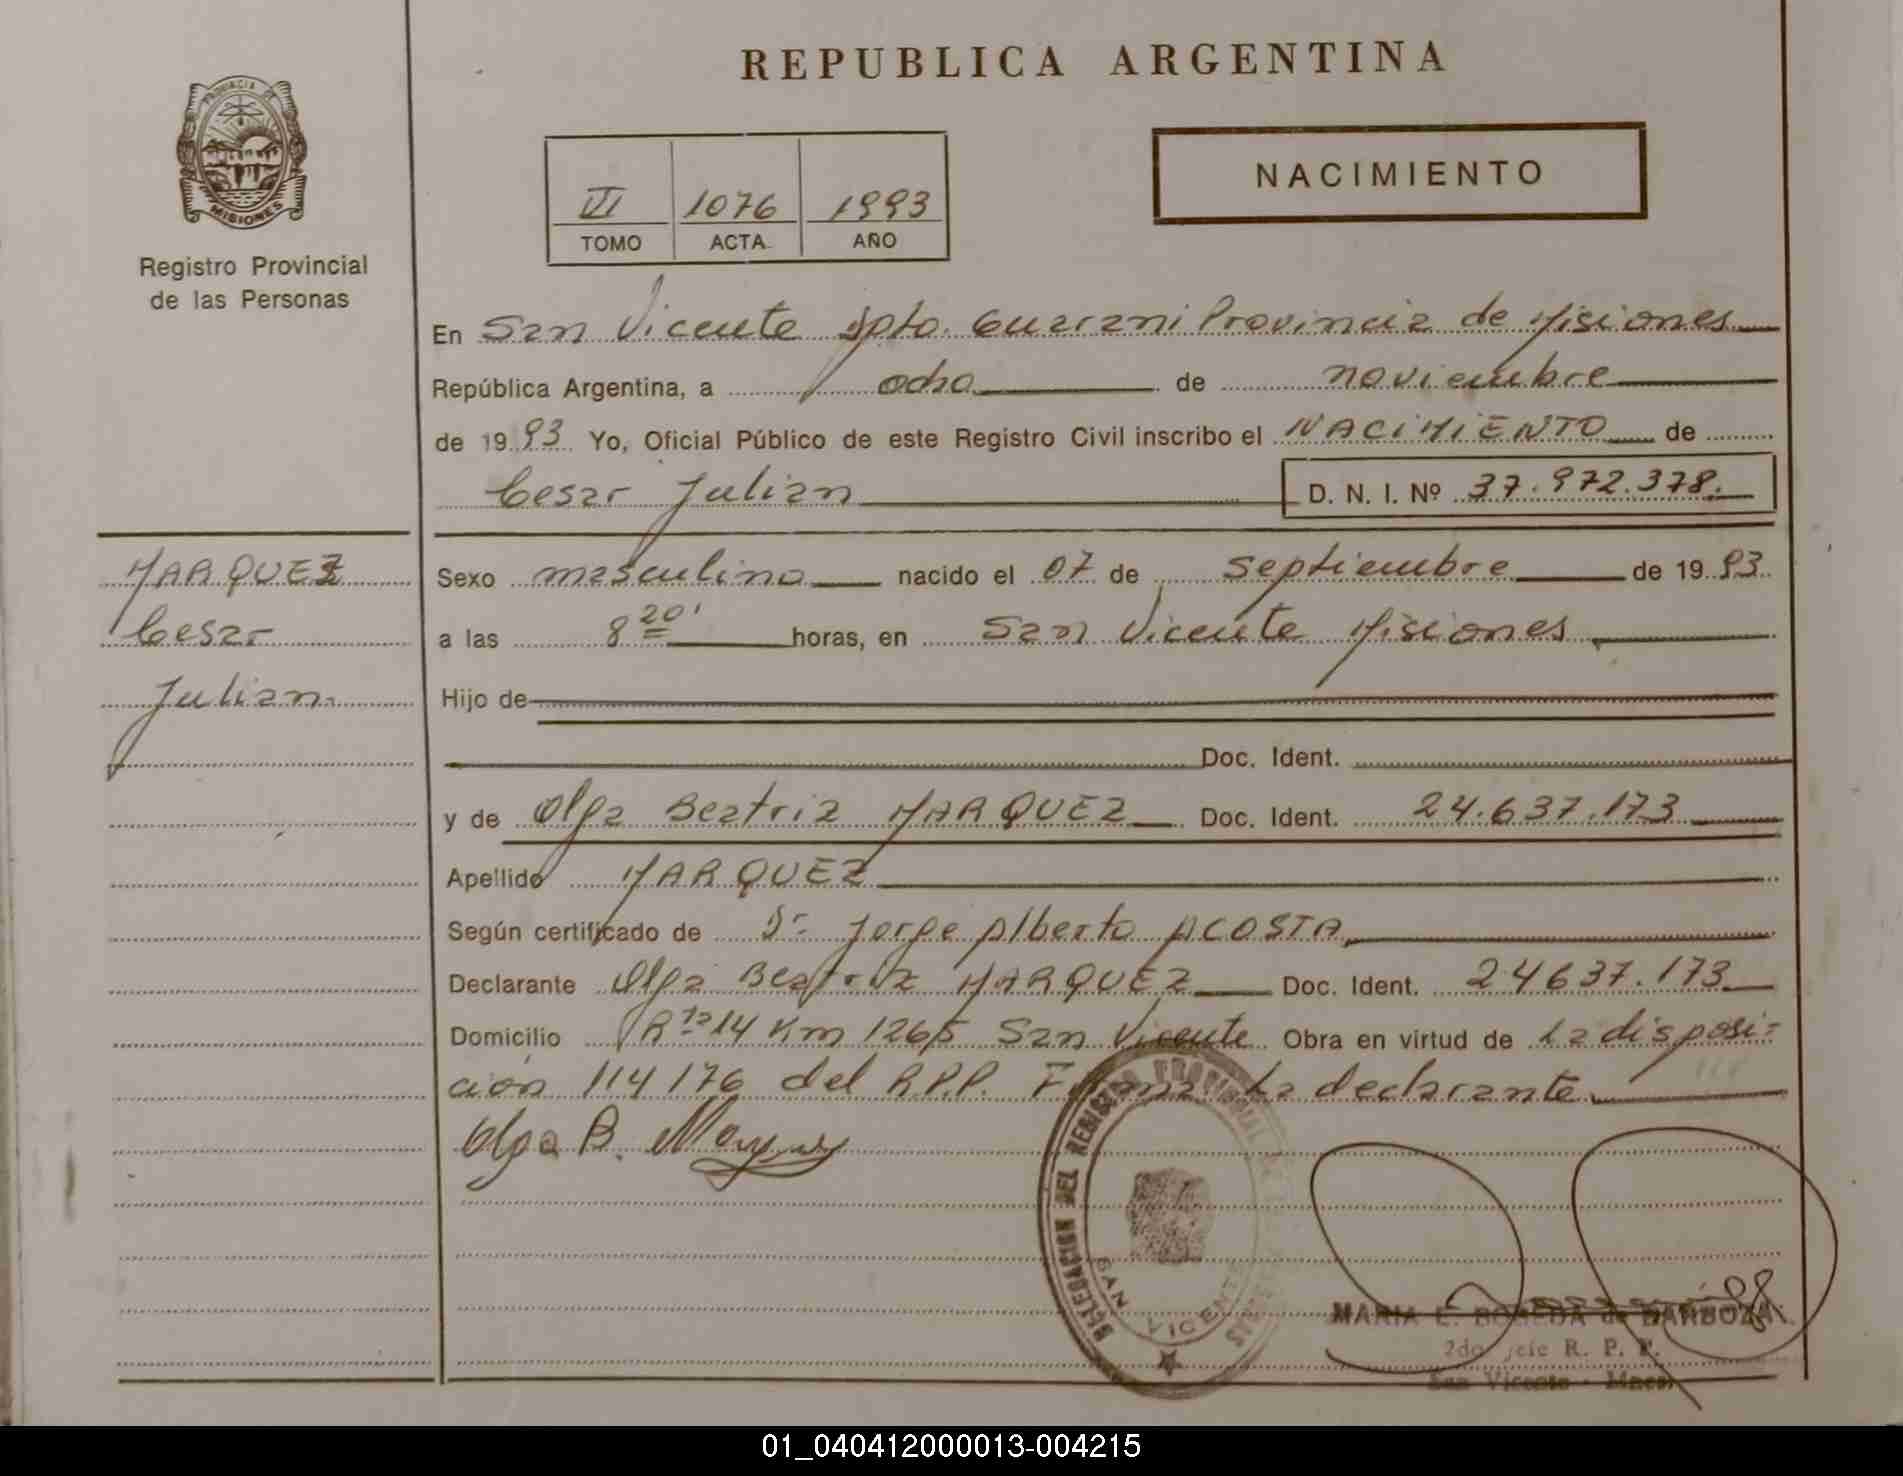 REPUBLICA ARGENTINA
PROVINCIA DE
MISIONES
Registro Provincial
de las Personas
VI 1076 1993
TOMO ACTA AÑO
NACIMIENTO
En San Vicente Dpto. Guarani Provincia de Misiones
República Argentina, a ocho de noviembre
de 1993 Yo, Oficial Público de este Registro Civil inscribo el NACIMIENTO de
Cesar Julian D. N. I. Nº 37.972.378.
MARQUEZ
Cesar
Julian
Sexo masculino nacido el 07 de septiembre de 1993
a las 8 20' horas, en San Vicente Misiones
Hijo de
Doc. Ident.
y de Olga Beatriz MARQUEZ Doc. Ident. 24.637.173
Apellido MARQUEZ
Según certificado de Dr Jorge Alberto ACOSTA
Declarante Olga Beatriz MARQUEZ Doc. Ident. 24637.173
Domicilio Rta 14 Km 1265 San Vicente Obra en virtud de La disposi-
ción 114/76 del R.P.P. Firma La declarante
Olga B. Marquez
DELEGACION DEL REGISTRO PROVINCIAL
SAN VICENTE
MARIA E. DE BARBOZA
2do Jefe R. P. P.
San Vicente - Mnes.
01_040412000013-004215